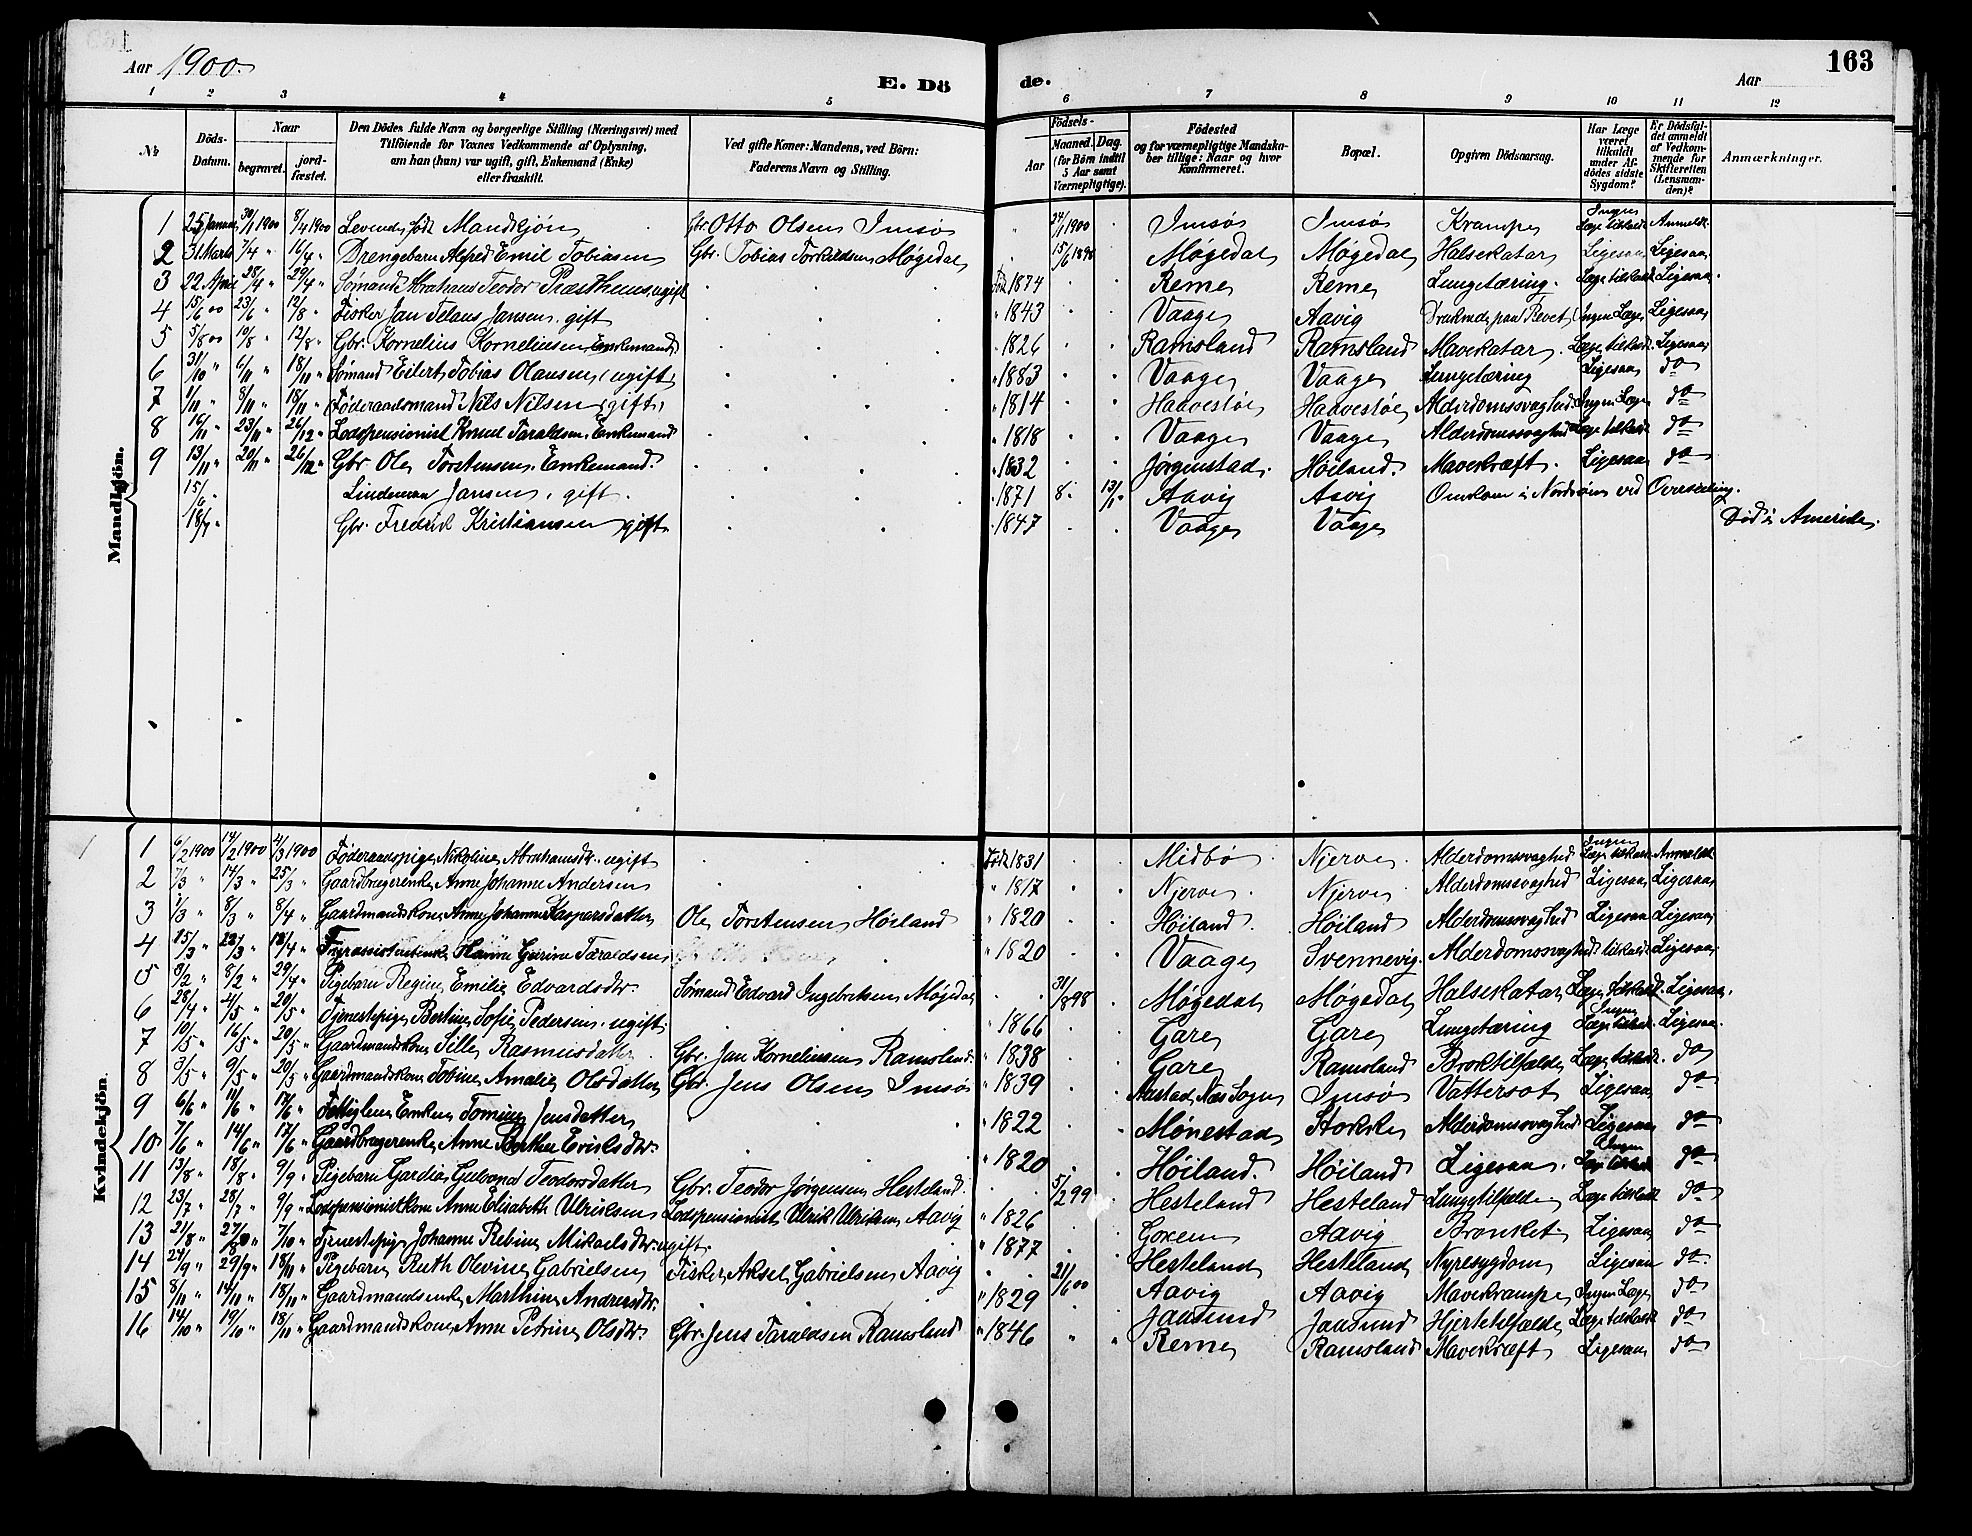 163
Aar 1900. E. Dö de. Aar
1 2 3 4 5 6 7 8 9 10 11 12
№ Döds-Datum. Naar begravet. jord-fæstet. Den Dödes fulde Navn og borgerlige Stilling (Næringsvei) med Tilföiende for Voxnes Vedkommende af Oplysning, om han (hun) var ugift, gift, Enkemand (Enke) eller fraskilt. Ved gifte Koner: Mandens, ved Börn: Faderens Navn og Stilling. Födsels- Aar Maaned. Dag. (for Börn indtil 5 Aar samt Værnepligtige). Födested og for værnepligtige Mandskaber tillige: Naar og hvor konfirmeret. Bopæl. Opgiven Dödsaarsag. Har Læge været tilkaldt under Afdödes sidste Sygdom? Er Dödsfaldet anmeldt af Vedkommende for Skifteretten (Lensmanden)? Anmærkninger.
Mandkjön.
1 25 Januar 30/1 1900 8/4 1900 Levende født Mandkjøn Gbr. Otto Olsen Imsø 24/1 1900 Imsø Imsø Krampe Ingen Læge tilkaldt Anmeldt
2 31 Marts 7/4 " 16/4 " Drengebarn Alfred Emil Tobiasen Gbr. Tobias Torkildsen Møgedal 15/6 1898 Møgedal Møgedal Halsekatar Ligesaa Ligesaa
3 22 April 28/4 " 29/4 " Sømand Abrahans Teodor ugift Født 1874 Reme Reme Lungetæring. Læge tilkaldt Ligesaa.
4 15/6 00 23/6 " 12/8 " Fisker Jan Jansen, gift " 1843 Vaage Aavig Druknede paa Revet Ingen Læge Ligesaa
5 5/8 00 10/8 " 12/8 " Gbr. Kornelius Korneliusen Enkemand " 1826 Ramsland Ramsland Mavekatar. Læge tilkaldt Ligesaa
6 31/10 " 6/11 " 18/11 " Sømand Eilert Tobias Olausen, ugift " 1883 Vaage Vaage Lungetæring Ligesaa do
7 1/11 " 8/11 " 18/11 " Føderaadsmand Nils Nilsen gift, " 1814 Haavestøl Haavestøl Alderdomssvaghed Ingen Læge do
8 16/11 " 23/11 " 26/12 " Lodspensionist Knud Taraldsen, Enkemand " 1818 Vaage Vaage Alderdomssvaghed Læge tilkaldt do
9 13/11 " 20/11 " 26/12 " Gbr. Ole Torstensen Enkemand. " 1832 Jørgenstad. Høiland. Mavekræft. Ligesaa do
15/ " Lindeman Jansen, gift. " 1871 8. Aavig Aavig Omkom i Nordsøen ved Overseiling.
18/7 " Gbr. Fredrik Kristiansen gift " 1847 Vaage Vaage Død i Amerika.
Kvindekjön.
1 6/2 1900 14/2 1900 4/3 1900 Føderaadspige Nikoline Abrahamsdtr. ugift Født 1831 Midbø Njerve. Alderdomssvaghed Ingen Læge tilkaldt Anmeldt
2 7/3 " 14/3 " 25/3 " Gaardbrugerenke Anne Johanne Andersen " 1817 Njerve. Njerve Alderdomssvaghed Ligesaa Ligesaa
3 1/3 " 8/3 " 8/4 " Gaardmandskone Anne Johanne Kaspersdatter Ole Torstensen Høiland " 1820 Høiland. Høiland Alderdomssvaghed Ligesaa Ligesaa
4 15/3 " 22/3 " 18/4 " Fyrassistentenke Hanne Gurine Taraldsen " 1820 Vaage Svennevig. Alderdomssvaghed tilkaldt Ligesaa
5 3/2 " 8/2 " 29/4 " Pigebarn Regine Emilie Edvardsdtr. Sømand Edvard Ingebretsen Møgedal 31/8 98 Møgedal Møgedal Halsekatar Læge tilkaldt. Ligesaa.
6 28/4 " 4/5 " 20/5 " Tjenestepige Bertine Sofie Pedersen. ugift. " 1866 Gare Gare Lungetæring Ingen Læge tilkaldt. Ligesaa.
7 10/5 " 16/5 " 20/5 " Gaardmandskone Tille Rasmusdatter Gbr. Jan Korneliusen Ramsland " 1838 Gare Ramsland Broktilfælde Læge tilkaldt. do
8 3/5 " 9/5 " 20/5 " Gaardmandskone Tobine Amalie Olsdatter Gbr. Jens Olsen Imsø " 1839 Næs Sogn Imsø Vattersot Ligesaa do
9 6/6 " 11/6 " 17/6 " Fattiglem Enke Tomine Jensdatter " 1822 Mønestad Stokke Alderdomssvaghed Ligesaa do
10 7/6 " 14/6 " 17/6 " Gaardbrugerenke Anne Berthe Eriksdtr. " 1820 Høiland. Høiland Ligesaa. Ingen Læge tilkaldt do
11 13/8 " 18/8 " 9/9 " Pigebarn Gardia Gudvora Teodorsdatter Gbr. Teodor Jørgensen Hesteland. 5/2 99 Hesteland Hesteland Lungetilfælde Læge tilkaldt do
12 23/7 " 28/7 " 9/9 " Lodspensionistkone Anne Elisabeth Ulriksen Lodspensionist Ulrik Ulriksen Aavig " 1826 Goren Aavig Bronket Ligesaa do
13 21/8 " 27/8 " 7/10 " Tjenestepige Johanne Rebine Mikaelsdtr. ugift. " 1877 Hesteland Hesteland Nyresygdom Ligesaa do.
14 24/9 " 29/9 " 18/11 " Pigebarn Ruth Olevine Gabrielsen Fisker Aksel Gabrielsen Aavig 21/6 00 Aavig Aavig Mavekrampe Ingen Læge do
15 8/11 " 14/11 " 18/11 " Gaardmandsenke Marthine Andreasdtr. " 1829 Jaasund Jaasund Hjertetilfælde Læge tilkaldt do
16 14/10 " 19/10 " 18/11 " Gaardmandskone Anne Petrine Olsdtr. Gbr. Jens Taraldsen Ramsland " 1846 " " Reme Ramsland Mavekræft Ligesaa do